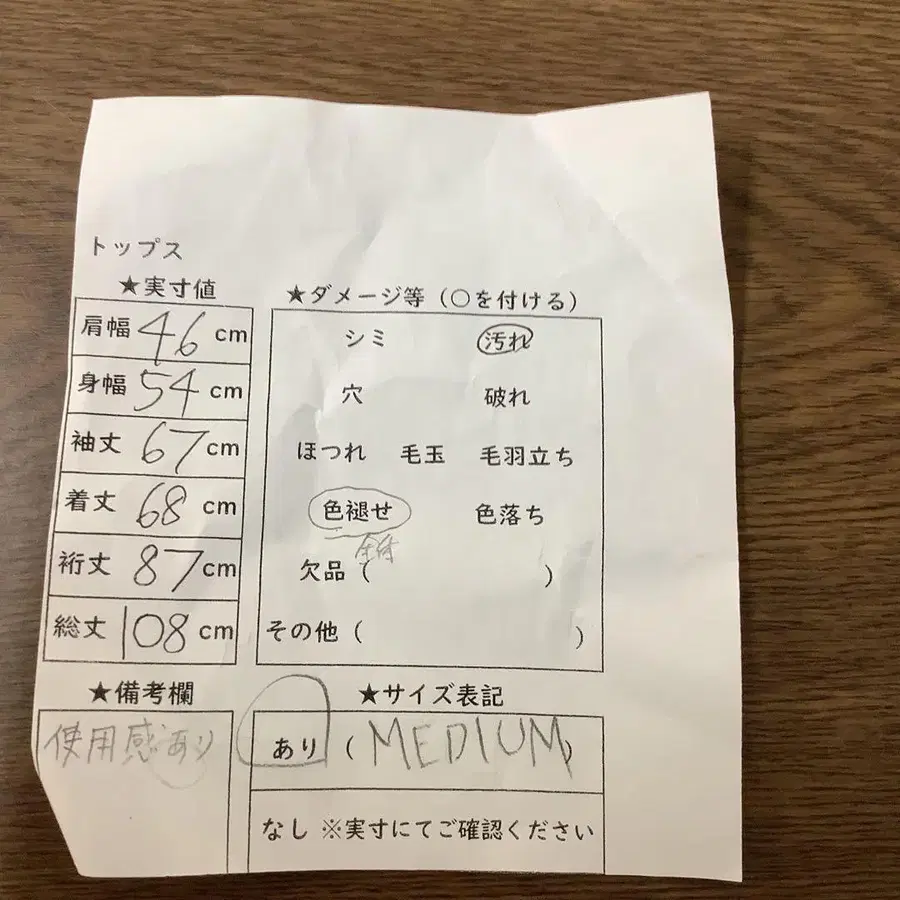 トップス
★実寸値
肩幅 46 cm
身幅 54 cm
袖丈 67 cm
着丈 68 cm
裄丈 87 cm
総丈 108 cm
★ダメージ等（○を付ける）
シミ 汚れ
穴 破れ
ほつれ 毛玉 毛羽立ち
色褪せ 色落ち
全体
欠品（ ）
その他（ ）
★備考欄
使用感あり
★サイズ表記
あり（MEDIUM）
なし ※実寸にてご確認ください